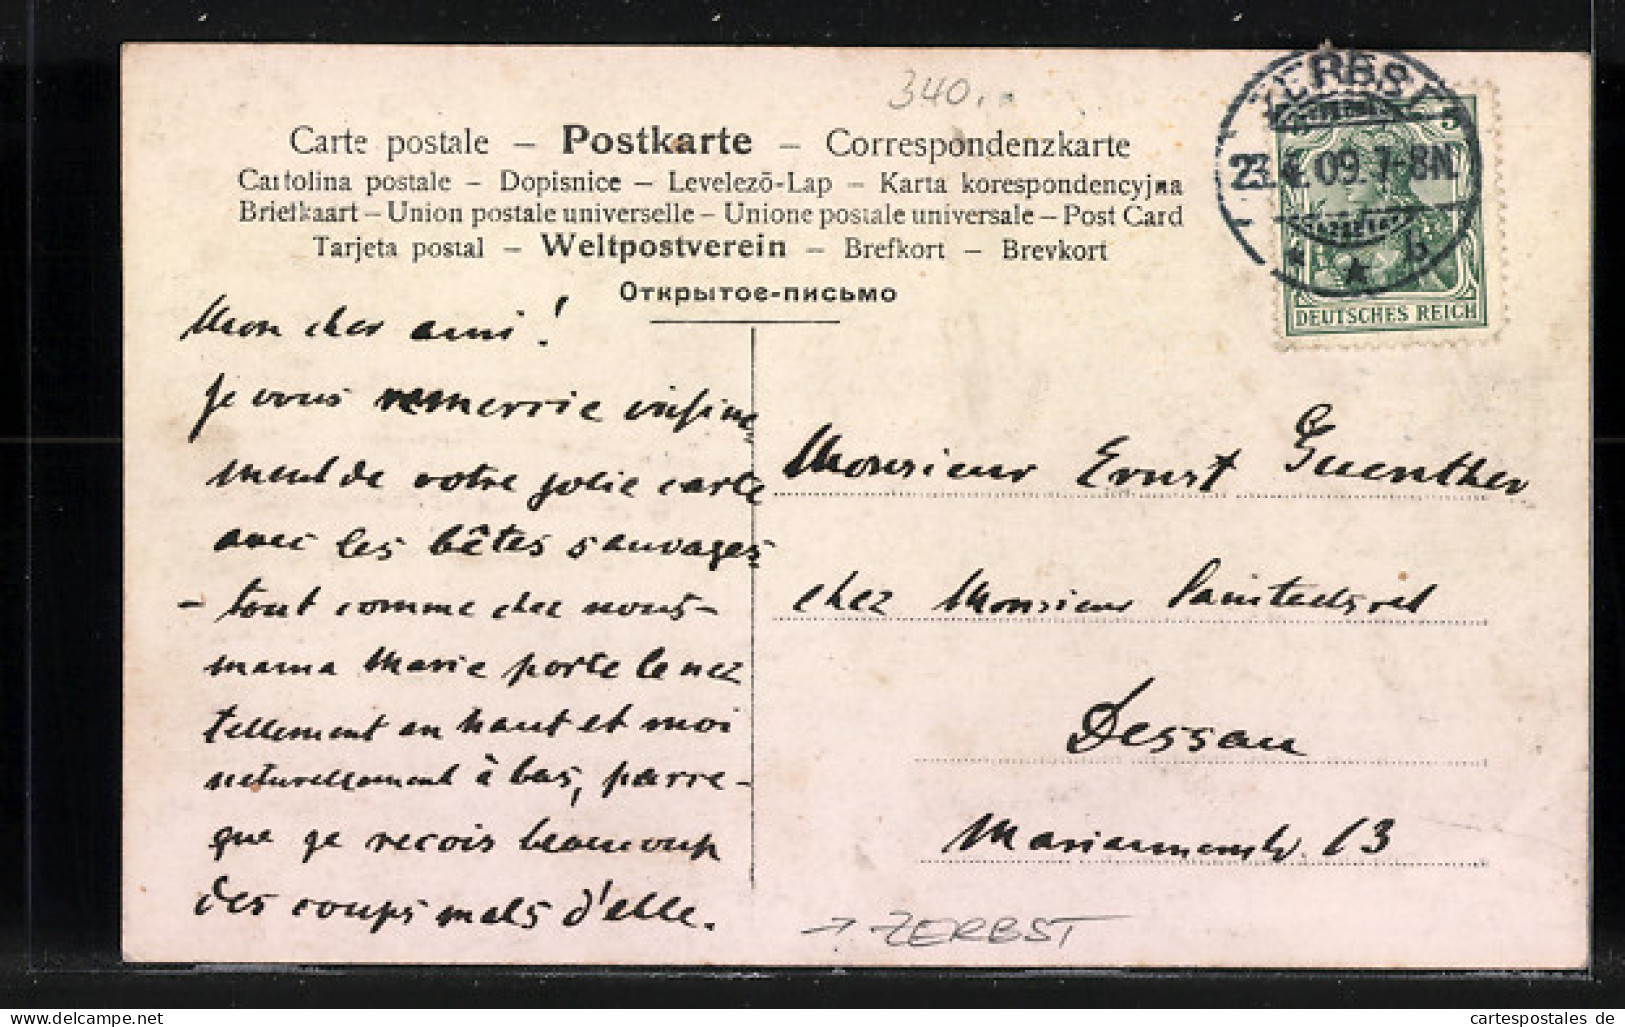 340.
Carte postale – Postkarte – Correspondenzkarte
Cartolina postale – Dopisnice – Levelező-Lap – Karta korespondencyjna
Briefkaart – Union postale universelle – Unione postale universale – Post Card
Tarjeta postal – Weltpostverein – Brefkort – Brevkort
Открытое-письмо
ZERBST
23.4.09.7-8N.
* * b
5
DEUTSCHES REICH
Mon cher ami!
Je vous remerrie infinne
ment de votre jolie carte
avec les bêtes sauvages
– tout comme chez nous –
mama Marie porte le nez
tellement en haut et moi
naturellement à bas, parre-
que je recois beaucoup
des coups mals d'elle.
Monsieur Ernst Guenther
chez Monsieur
Dessau
13
→ ZERBST
cartespostales de